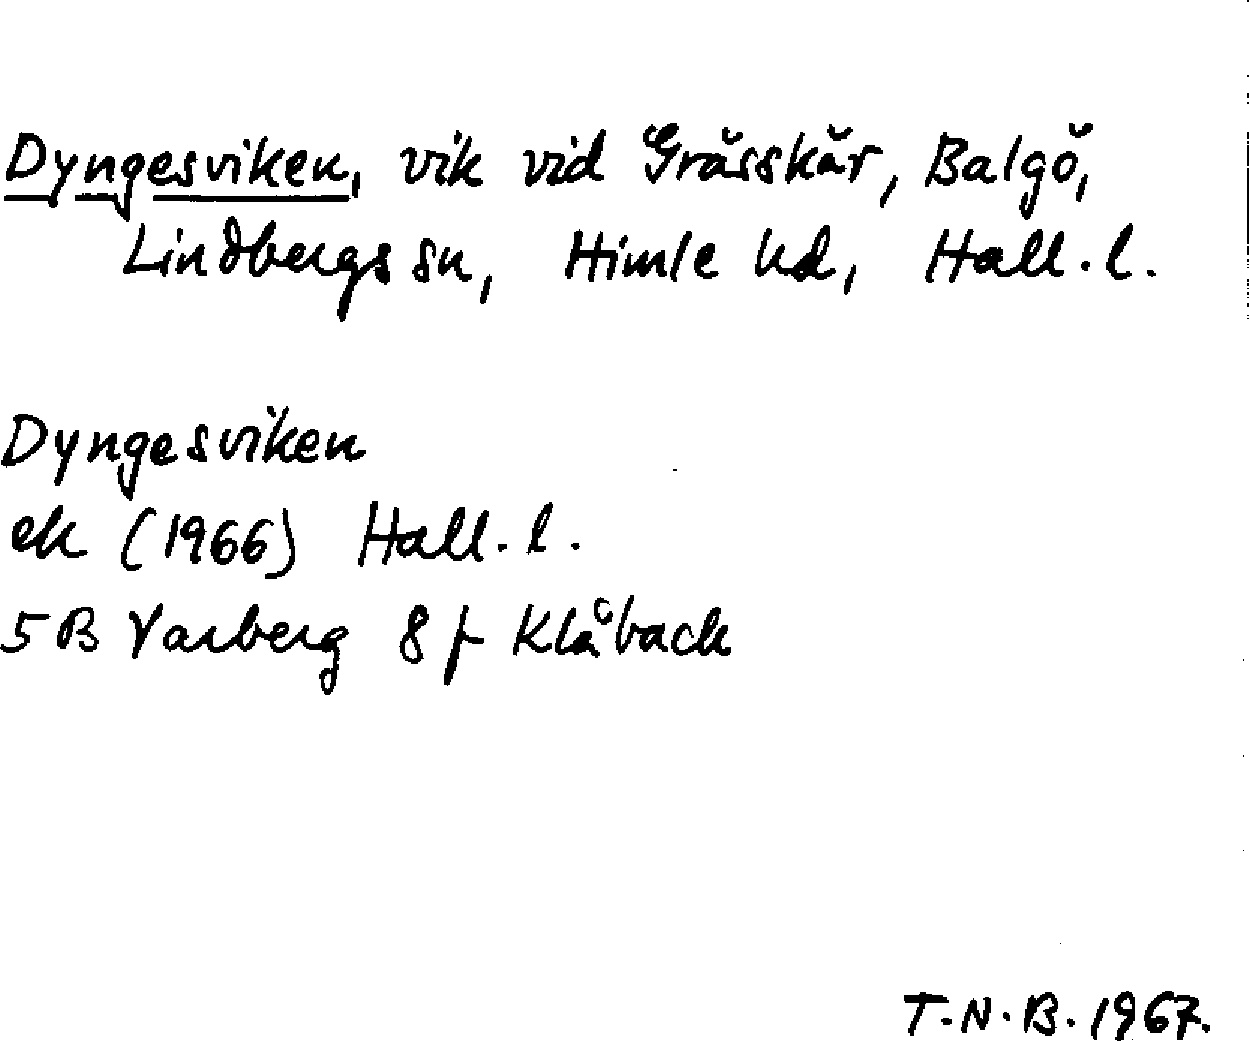 Dyngesviken, vik vid Grässkär, Balgö,
Lindbergs sn, Himle hd, Hall. l.
Dyngesviken
ek (1966) Hall. l.
5B Varberg 8 f Klåback
T.N.B. 1967.